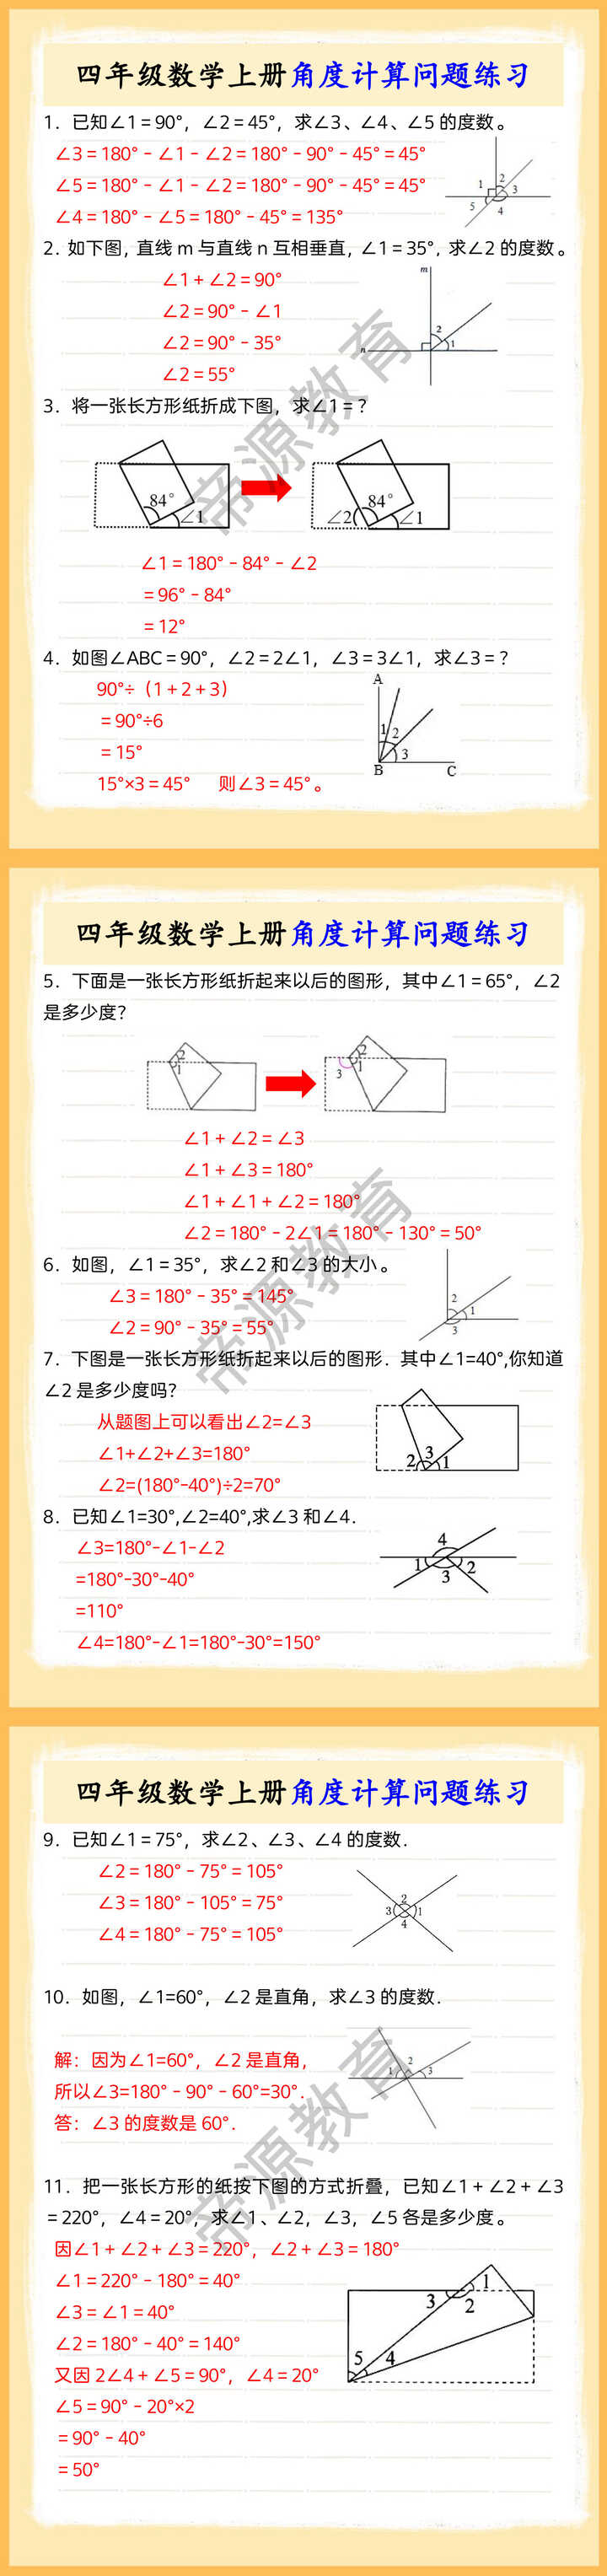 四年级数学上册角度计算问题练习
1. 已知∠1=90°，∠2=45°，求∠3、∠4、∠5的度数。
∠3=180°-∠1-∠2=180°-90°-45°=45°
∠5=180°-∠1-∠2=180°-90°-45°=45°
∠4=180°-∠5=180°-45°=135°
1 2 3
5 4
2. 如下图，直线m与直线n互相垂直，∠1=35°，求∠2的度数。
∠1+∠2=90°
∠2=90°-∠1
∠2=90°-35°
∠2=55°
m
2
n 1
3. 将一张长方形纸折成下图，求∠1=？
84° ∠1
∠2 84° ∠1
∠1=180°-84°-∠2
=96°-84°
=12°
4. 如图∠ABC=90°，∠2=2∠1，∠3=3∠1，求∠3=？
90°÷（1+2+3）
=90°÷6
=15°
15°×3=45° 则∠3=45°。
A
1 2
3
B C
帝源教育
四年级数学上册角度计算问题练习
5. 下面是一张长方形纸折起来以后的图形，其中∠1=65°，∠2
是多少度？
2
1
2
3 1
∠1+∠2=∠3
∠1+∠3=180°
∠1+∠1+∠2=180°
∠2=180°-2∠1=180°-130°=50°
6. 如图，∠1=35°，求∠2和∠3的大小。
∠3=180°-35°=145°
∠2=90°-35°=55°
2
1
3
7. 下图是一张长方形纸折起来以后的图形. 其中∠1=40°,你知道
∠2是多少度吗?
从题图上可以看出∠2=∠3
∠1+∠2+∠3=180°
∠2=(180°-40°)÷2=70°
2 3 1
8. 已知∠1=30°,∠2=40°,求∠3和∠4.
∠3=180°-∠1-∠2
=180°-30°-40°
=110°
∠4=180°-∠1=180°-30°=150°
4
1 3 2
帝源教育
四年级数学上册角度计算问题练习
9. 已知∠1=75°，求∠2、∠3、∠4的度数.
∠2=180°-75°=105°
∠3=180°-105°=75°
∠4=180°-75°=105°
2
3 1
4
10. 如图，∠1=60°，∠2是直角，求∠3的度数.
解：因为∠1=60°，∠2是直角，
所以∠3=180°-90°-60°=30°.
答：∠3的度数是60°.
2
1 3
11. 把一张长方形的纸按下图的方式折叠，已知∠1+∠2+∠3
=220°，∠4=20°，求∠1、∠2，∠3，∠5各是多少度。
因∠1+∠2+∠3=220°，∠2+∠3=180°
∠1=220°-180°=40°
∠3=∠1=40°
∠2=180°-40°=140°
又因2∠4+∠5=90°，∠4=20°
∠5=90°-20°×2
=90°-40°
=50°
1
3 2
5 4
帝源教育